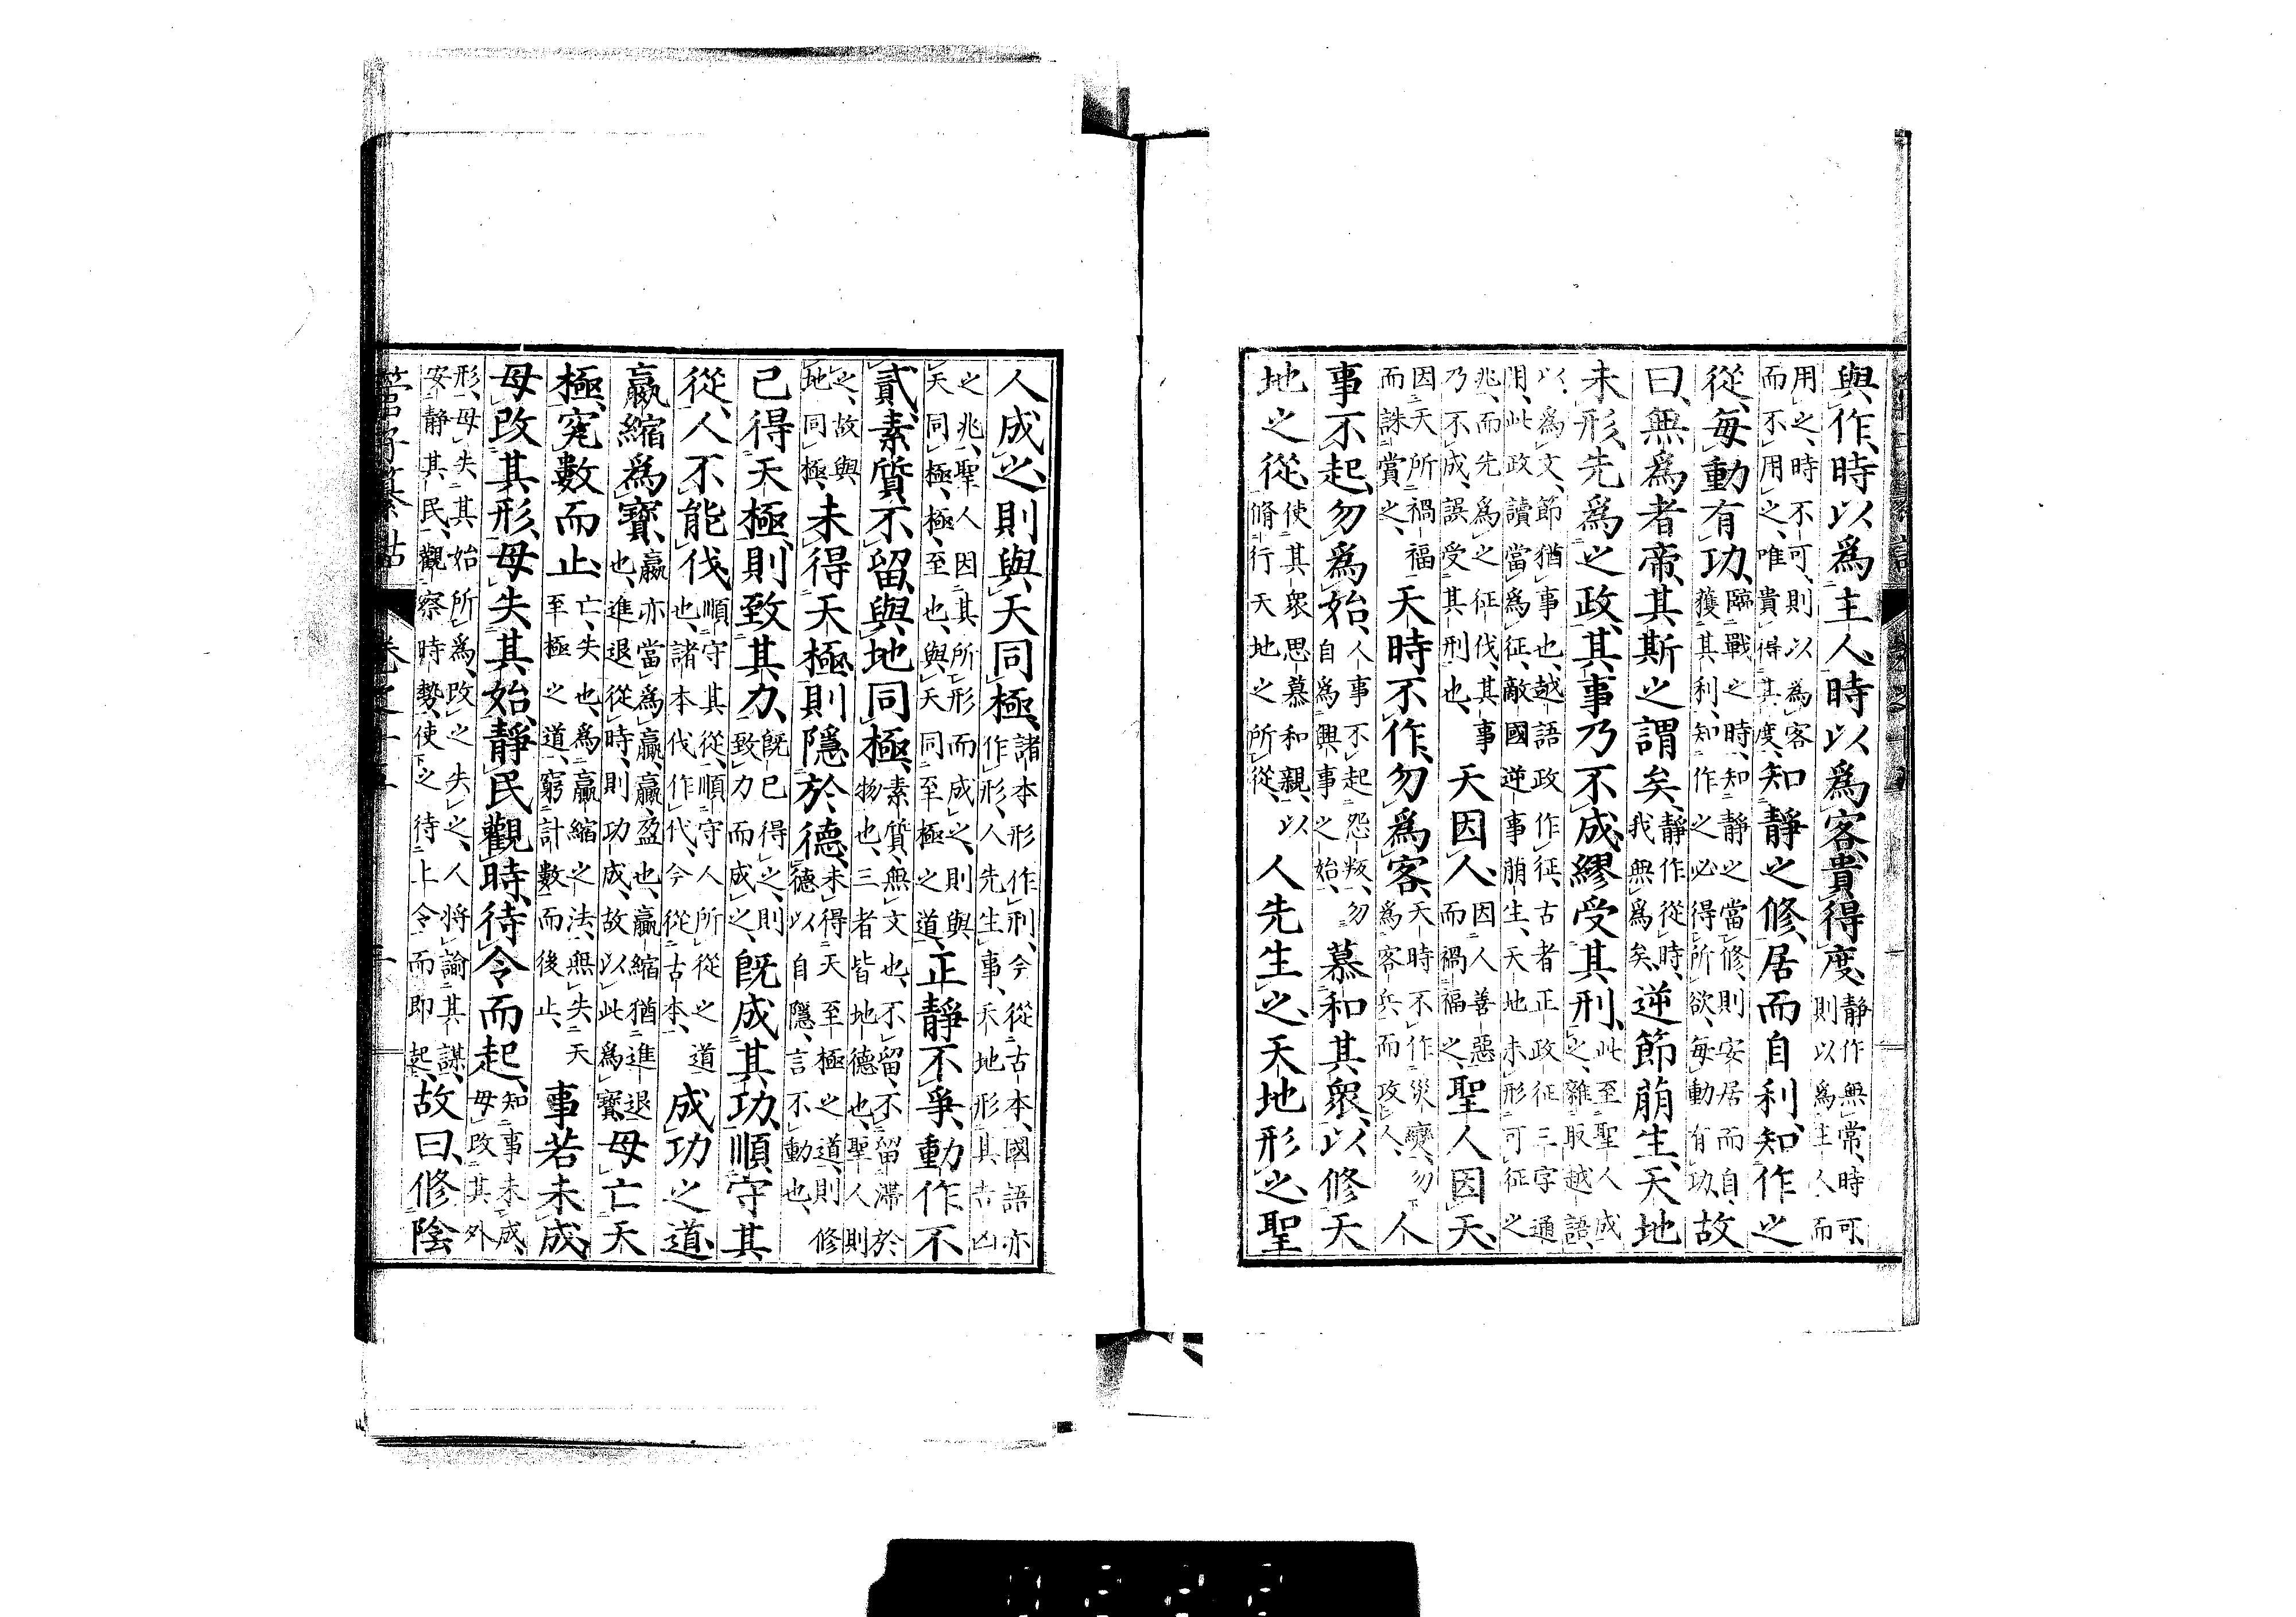 與作、時以爲主人、時以爲客、貴得度、靜作無常、時可則以爲主人、而
用之、時不可、則以爲客而不用之、唯貴得其度、知靜之修、居而自利、知作之
從、每動有功、臨戰之時、知靜之當修、則安居而自獲其利、知作之必得所欲、每動有功、故
曰、無爲者帝、其斯之謂矣、靜作從時、我無爲矣、逆節萠生、天地
未形、先爲之政、其事乃不成、繆受其刑、此至聖人成之、雜取越語、
以爲文、節猶事也、越語政作征、古者正政征三字通用、此政讀當爲征、敵國逆事萠生、天地未形可征之
兆、而先爲之征伐、其事乃不成、誤受其刑也、天因人、因人善惡而禍福之、聖人因天、
因天所禍福而誅賞之、天時不作、勿爲客、天時不作災變、勿爲客兵而攻人、人
事不起、勿爲始、人事不起怨叛、勿自爲興事之始、慕和其衆、以修天
地之從、使其衆思慕和親、以脩行天地之所從、人先生之、天地形之、聖
人成之、則與天同極、諸本形作刑、今從古本、國語亦作形、人先生事、天地形其吉凶
之兆、聖人因其所形而成之、則與天同極、極、至也、與天同至極之道、正靜不爭、動作不
貳、素質不留、與地同極、素質、無文也、不留、不留滯於物也、三者皆地德也、聖人則
之、故與地同極、未得天極、則隱於德、未得天至極之道、則修德以自隱、言不動也、
已得天極、則致其力、既已得之、則致力而成之、既成其功、順守其
從、人不能伐、順守其從、順守人所從之道也、諸本伐作代、今從古本、成功之道、
嬴縮爲寶、嬴亦當爲贏、贏、盈也、贏縮猶進退也、進退從時、則功成、故以此爲寶、毋亡天
極、究數而止、亡、失也、爲贏縮之法、無失天至極之道、窮計數而後止、事若未成、
毋改其形、毋失其始、靜民觀時、待令而起、知事未成、毋改其外
形、毋失其始所爲、改之失之、人將諭其謀、安靜其民、觀察時勢、使下之待上令而即起、故曰、修陰